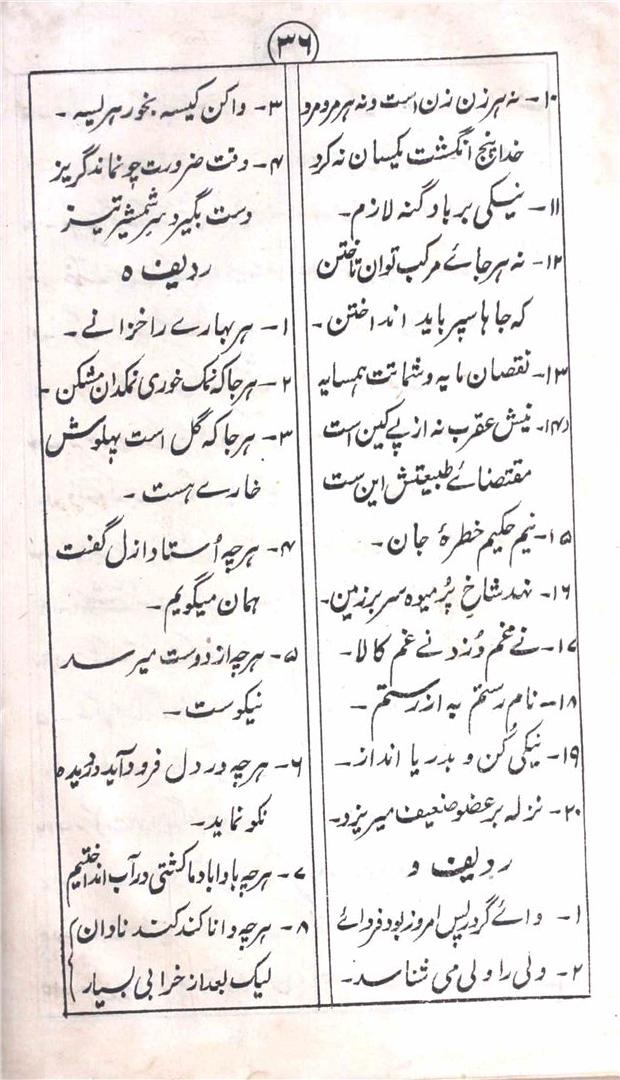 ۳۶
۱۰- نہ ہر زن زن است و نہ ہر مرد مرد
خدا پنج انگشت یکساں نہ کرد
۱۱- نیکی برباد گنہ لازم۔
۱۲- نہ ہر جائے مرکب تواں تاختن
کہ جاہا سپر باید انداختن۔
۱۳- نقصان مایہ و شماتت ہمسایہ
۱۴- نیش عقرب نہ از پے کین است
مقتضائے طبیعتش این ست
۱۵- نیم حکیم خطرۂ جان۔
۱۶- نہد شاخِ پُر میوہ سر بر زمین۔
۱۷- نے غم دُزد نے غم کالا۔
۱۸- نام رستم بہ از رستم۔
۱۹- نیکی کُن و بدریا انداز۔
۲۰- نزلہ بر عضو ضعیف میریزد۔
ردیف و
۱- وائے گر در پس امروز بود فردائے
۲- ولی را ولی می شناسد۔
۳- وا کن کیسہ بخور ہریسہ۔
۴- وقت ضرورت چو نماند گریز
دست بگیرد سر شمشیر تیز
ردیف ہ
۱- ہر بہارے را خزانے۔
۲- ہر جا کہ نمک خوری نمکدان مشکن۔
۳- ہر جا کہ گل است پہلوش
خارے ہست۔
۴- ہر چہ اُستاد ازل گفت
ہماں میگویم۔
۵- ہر چہ از دوست میرسد
نیکوست۔
۶- ہر چہ در دل فرود آید در دیدہ
نکو نماید۔
۷- ہر چہ بادا باد ما کشتی در آب انداختیم
۸- ہر چہ دانا کند کند نادان
لیک بعد از خرابی بسیار